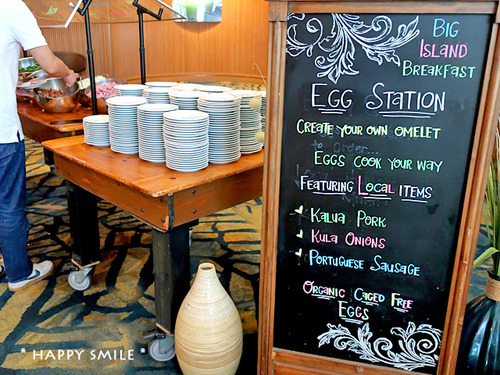 Big
Island
Breakfast
Egg Station
Create your own omelet
to order...
Eggs cook your way
Featuring Local items
✓ Kalua Pork
✓ Kula Onions
✓ Portuguese Sausage
Organic Caged Free
Eggs
* HAPPY SMILE *